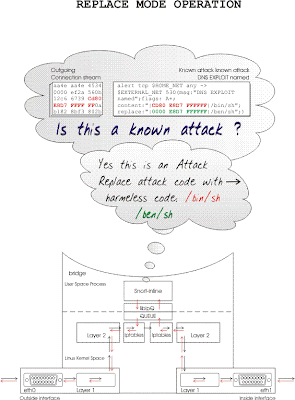 REPLACE MODE OPERATION
Outgoing
Connection stream
Known attack known attack
DNS EXPLOIT named
alert tcp $HOME_NET any ->
$EXTERNAL_NET 53(msg:"DNS EXPLOIT
named";flags: A+;
content:"|CD80 E8D7 FFFFFF|/bin/sh";
replace:"|0000 E8D7 FFFFFF|/ben/sh";)
Is this a known attack ?
Yes this is an Attack
Replace attack code with →
harmless code. /bin/sh
/ben/sh
bridge
User Space Process
Snort-Inline
libipq
QUEUE
Layer 2
iptables
iptables
Layer 2
Linux Kernel Space
eth0
Layer 1
Layer 1
eth1
Outside interface
Inside interface